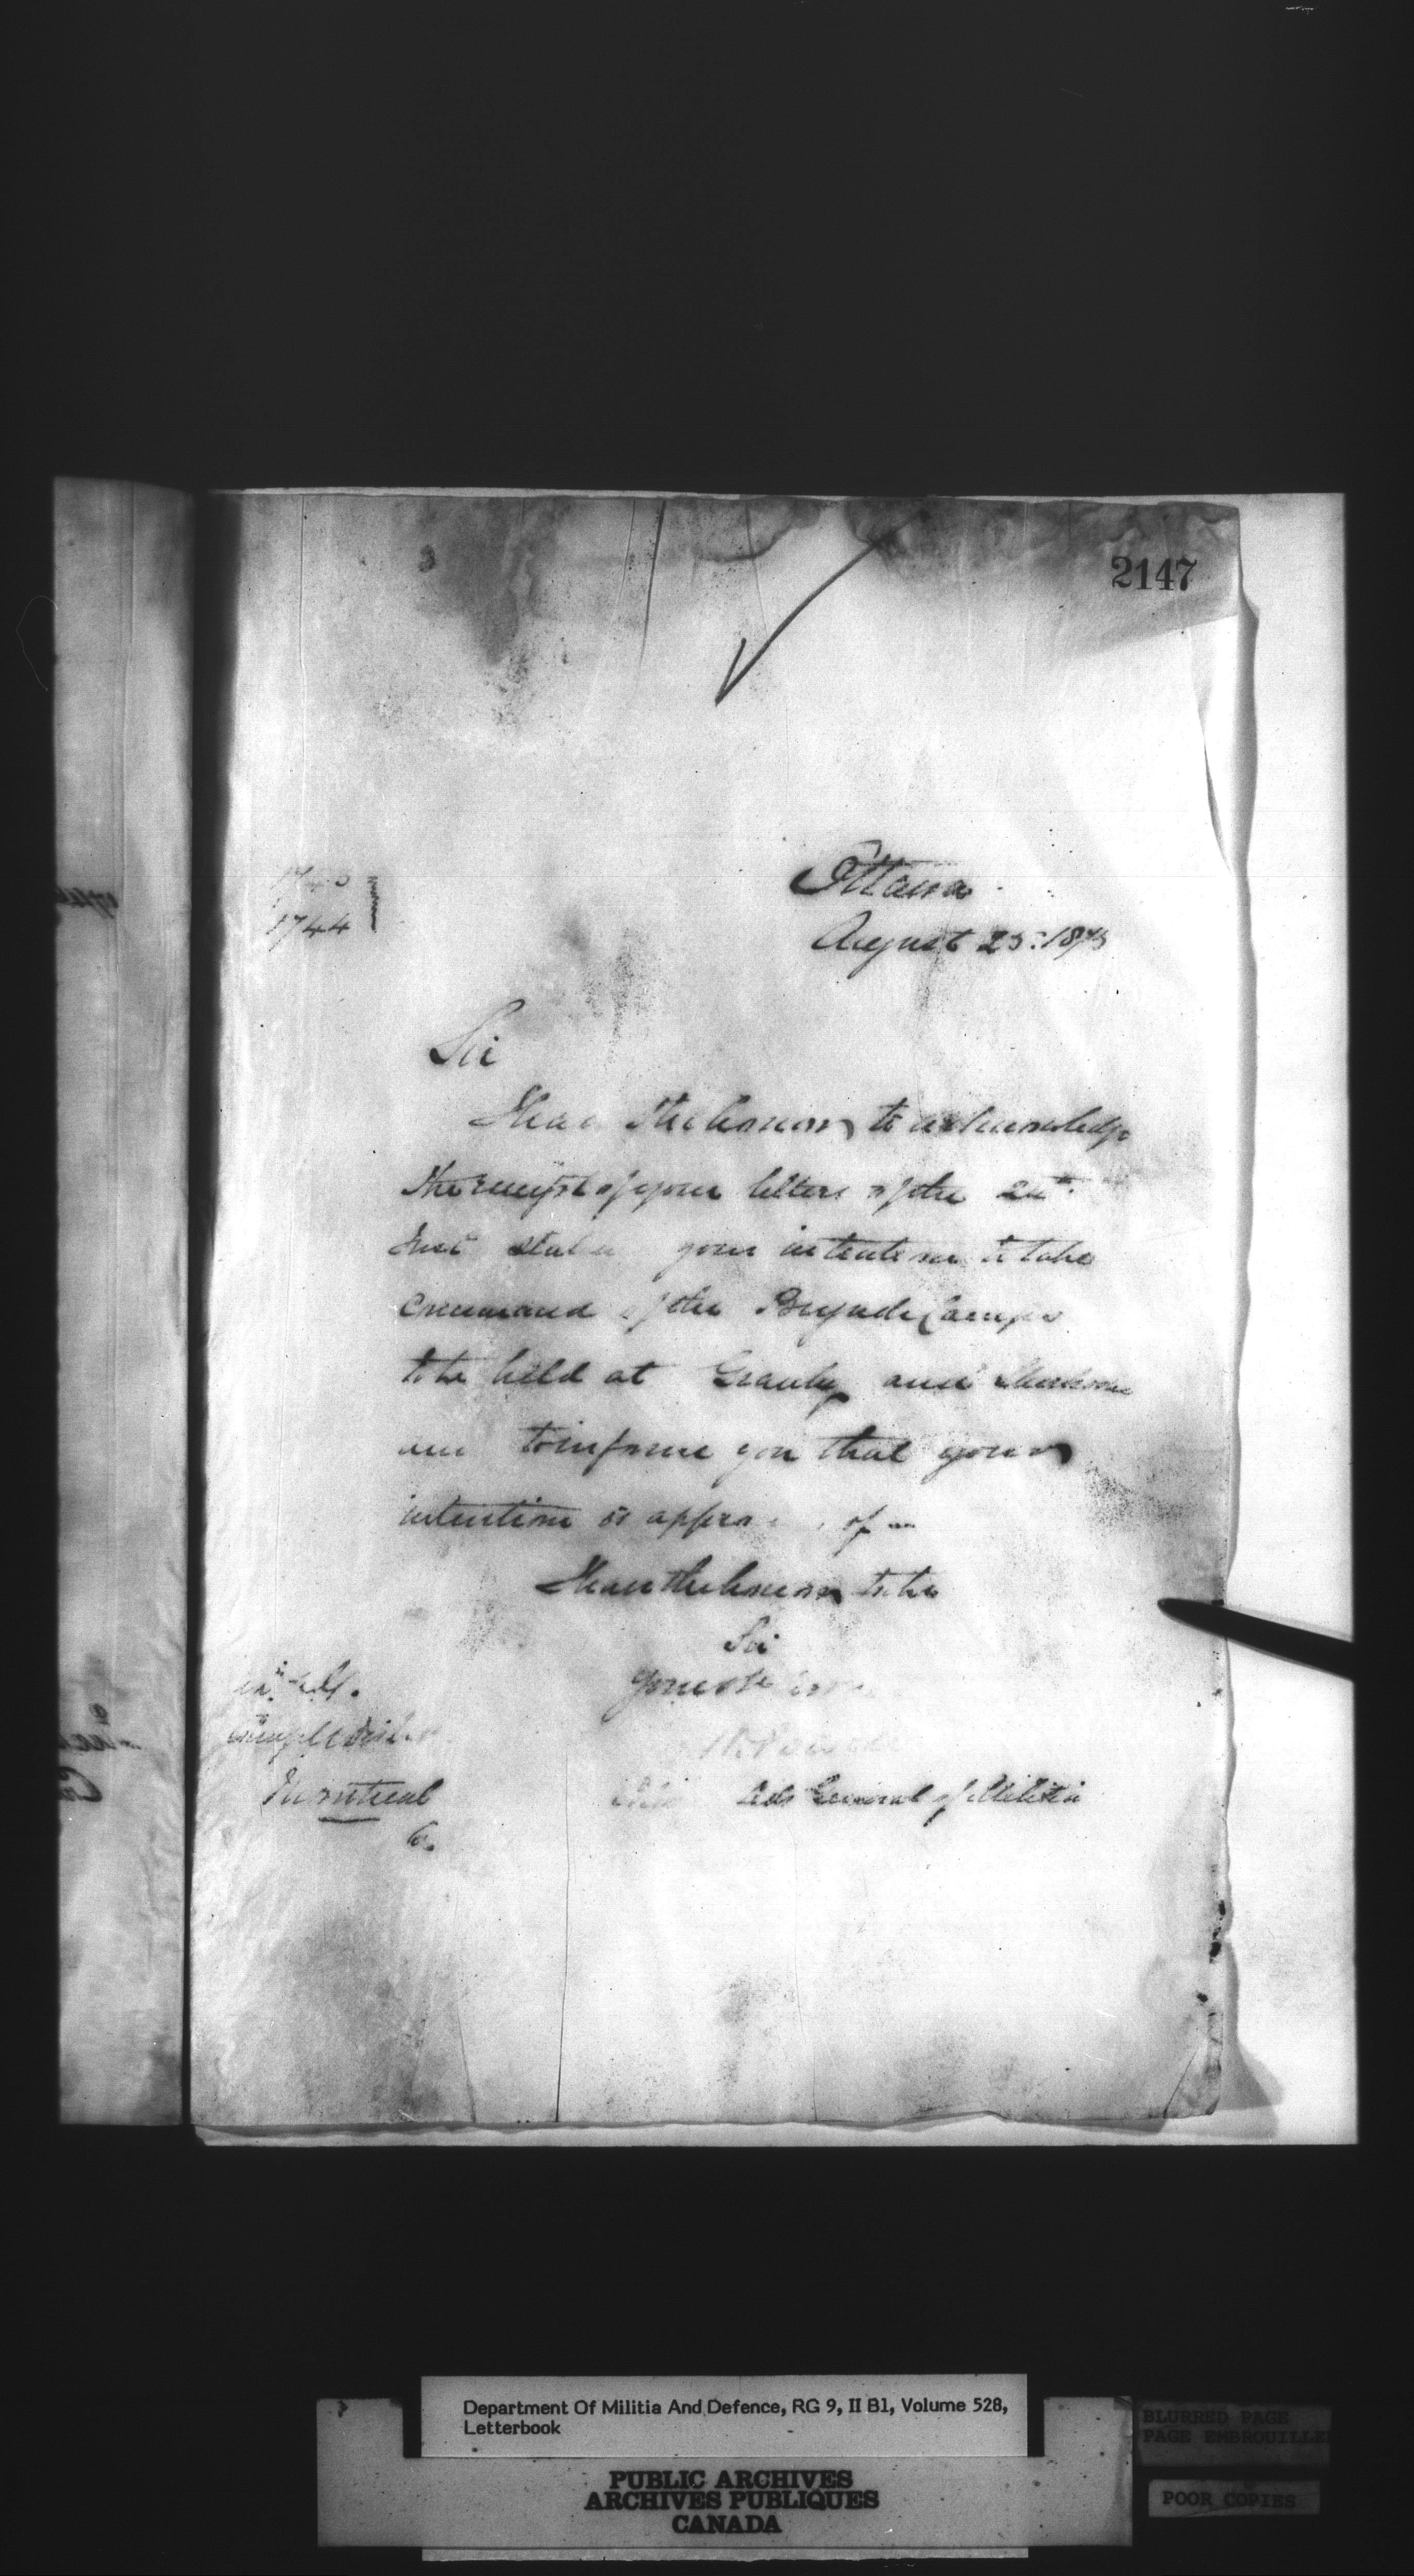 2147
1744
Ottawa
August 25: 187
Sir
I have the honor to acknowledge
the receipt of your letters of the
Inst your intention to take
command of the Brigade Camps
to be held at Granby and
and to inform you that your
intention is of
I have the honor to be
Sir
Your
Montreal
Adj General of Militia
Department Of Militia And Defence, RG 9, II B1, Volume 528,
Letterbook
PUBLIC ARCHIVES
ARCHIVES PUBLIQUES
CANADA
BLURRED PAGE
PAGE EMBROUILLE
POOR COPIES